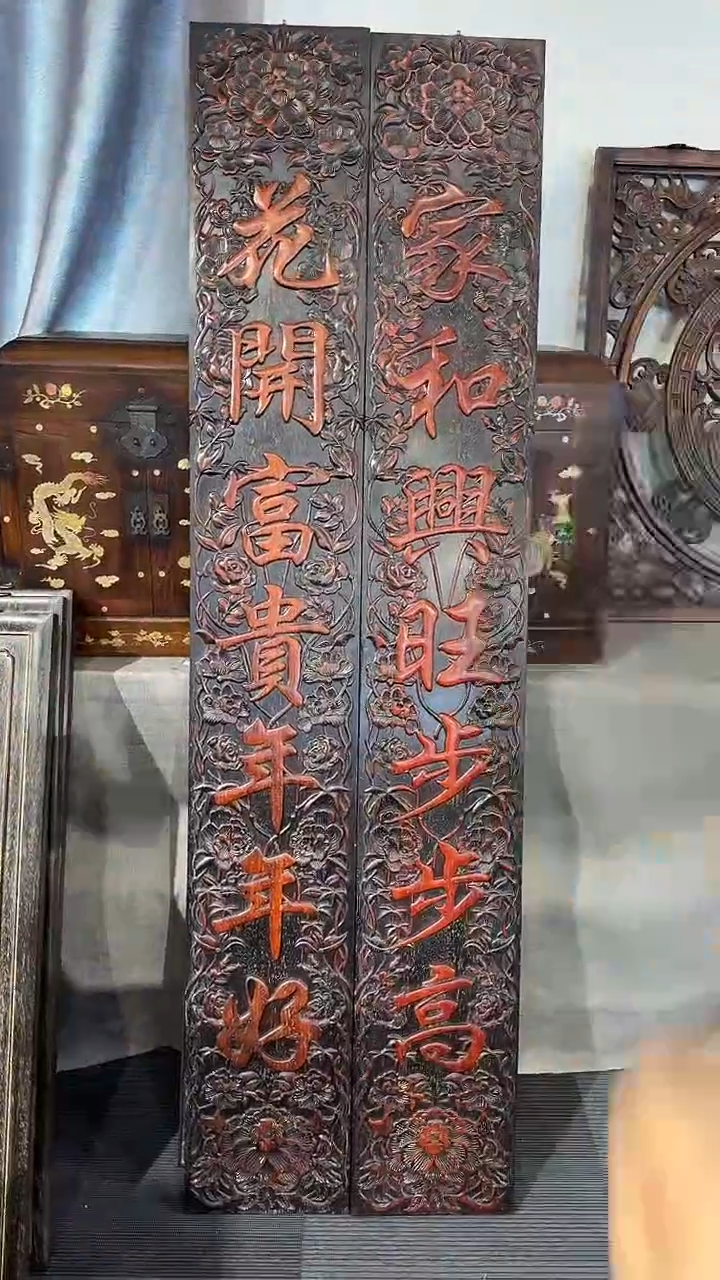 家和興旺步步高
花開富貴年年好